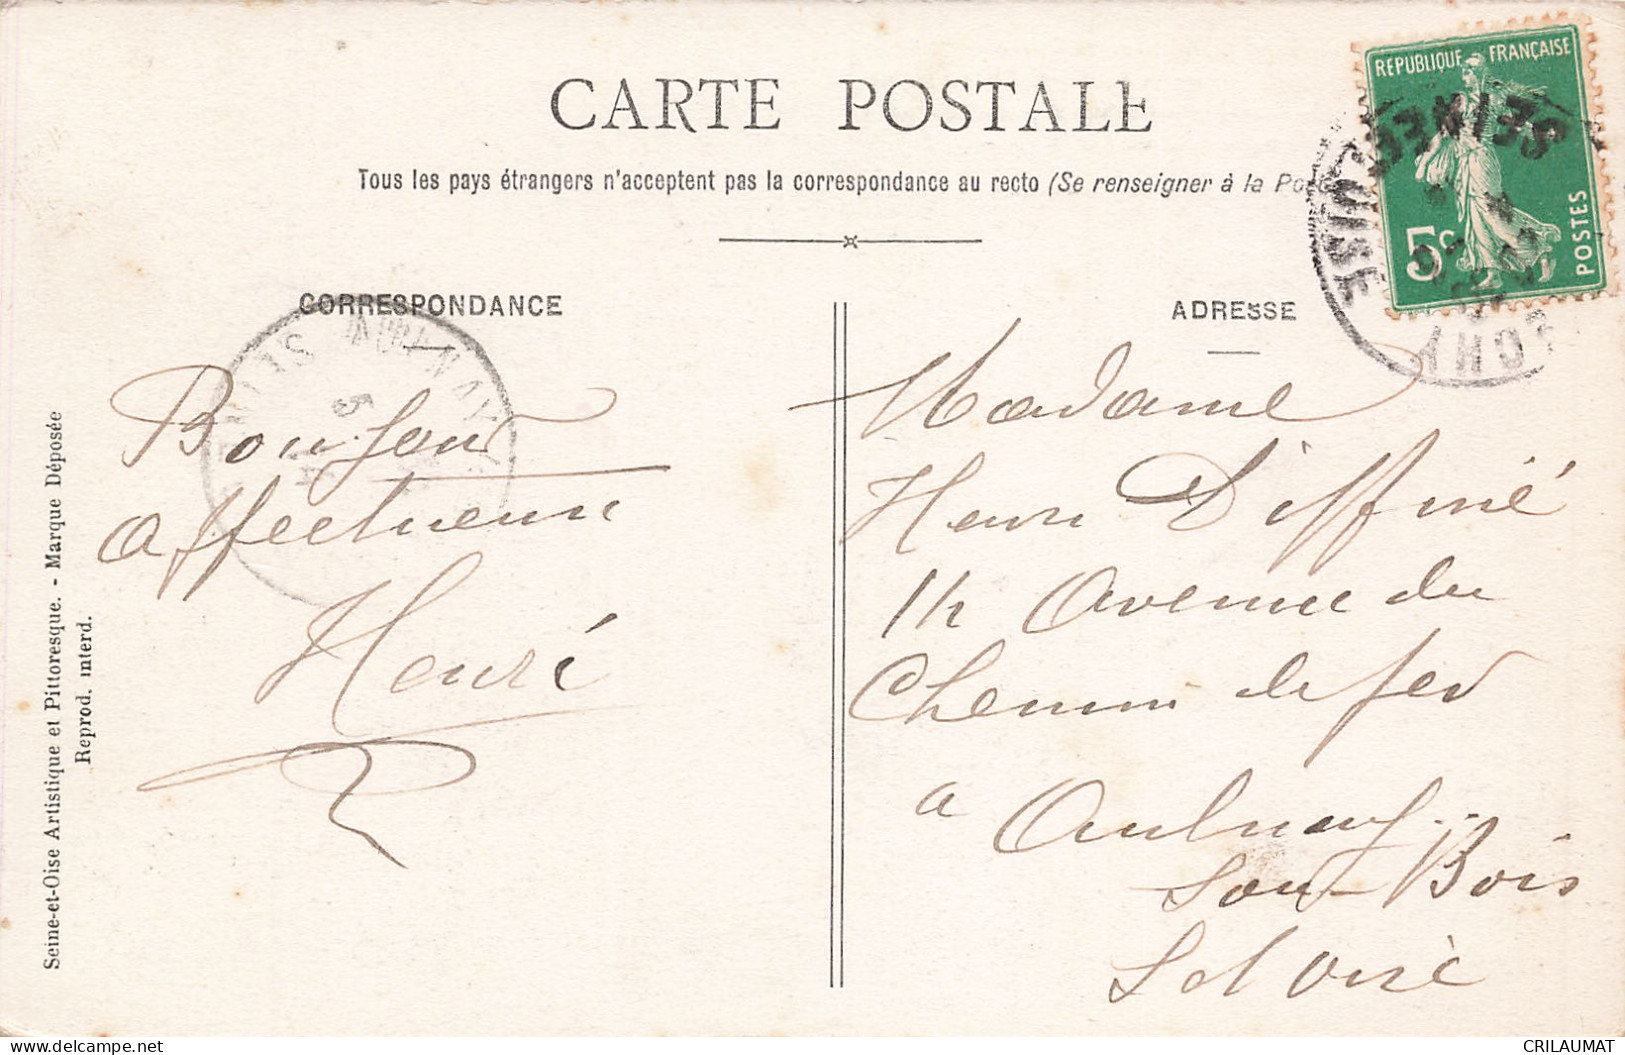 CARTE POSTALE
Tous les pays étrangers n'acceptent pas la correspondance au recto (Se renseigner à la Poste
REPUBLIQUE FRANÇAISE
5c
POSTES
SEINE
OISE
CORRESPONDANCE
ADRESSE
AULNAY
Bonjour
affectueux
Henri
Madame
Henri
14 Avenue du
Chemin de fer
a Aulnay
Sous-Bois
S et Oise
Seine-et-Oise Artistique et Pittoresque. - Marque Déposée
Reprod. interd.
www.delcampe.net
CRILAUMAT